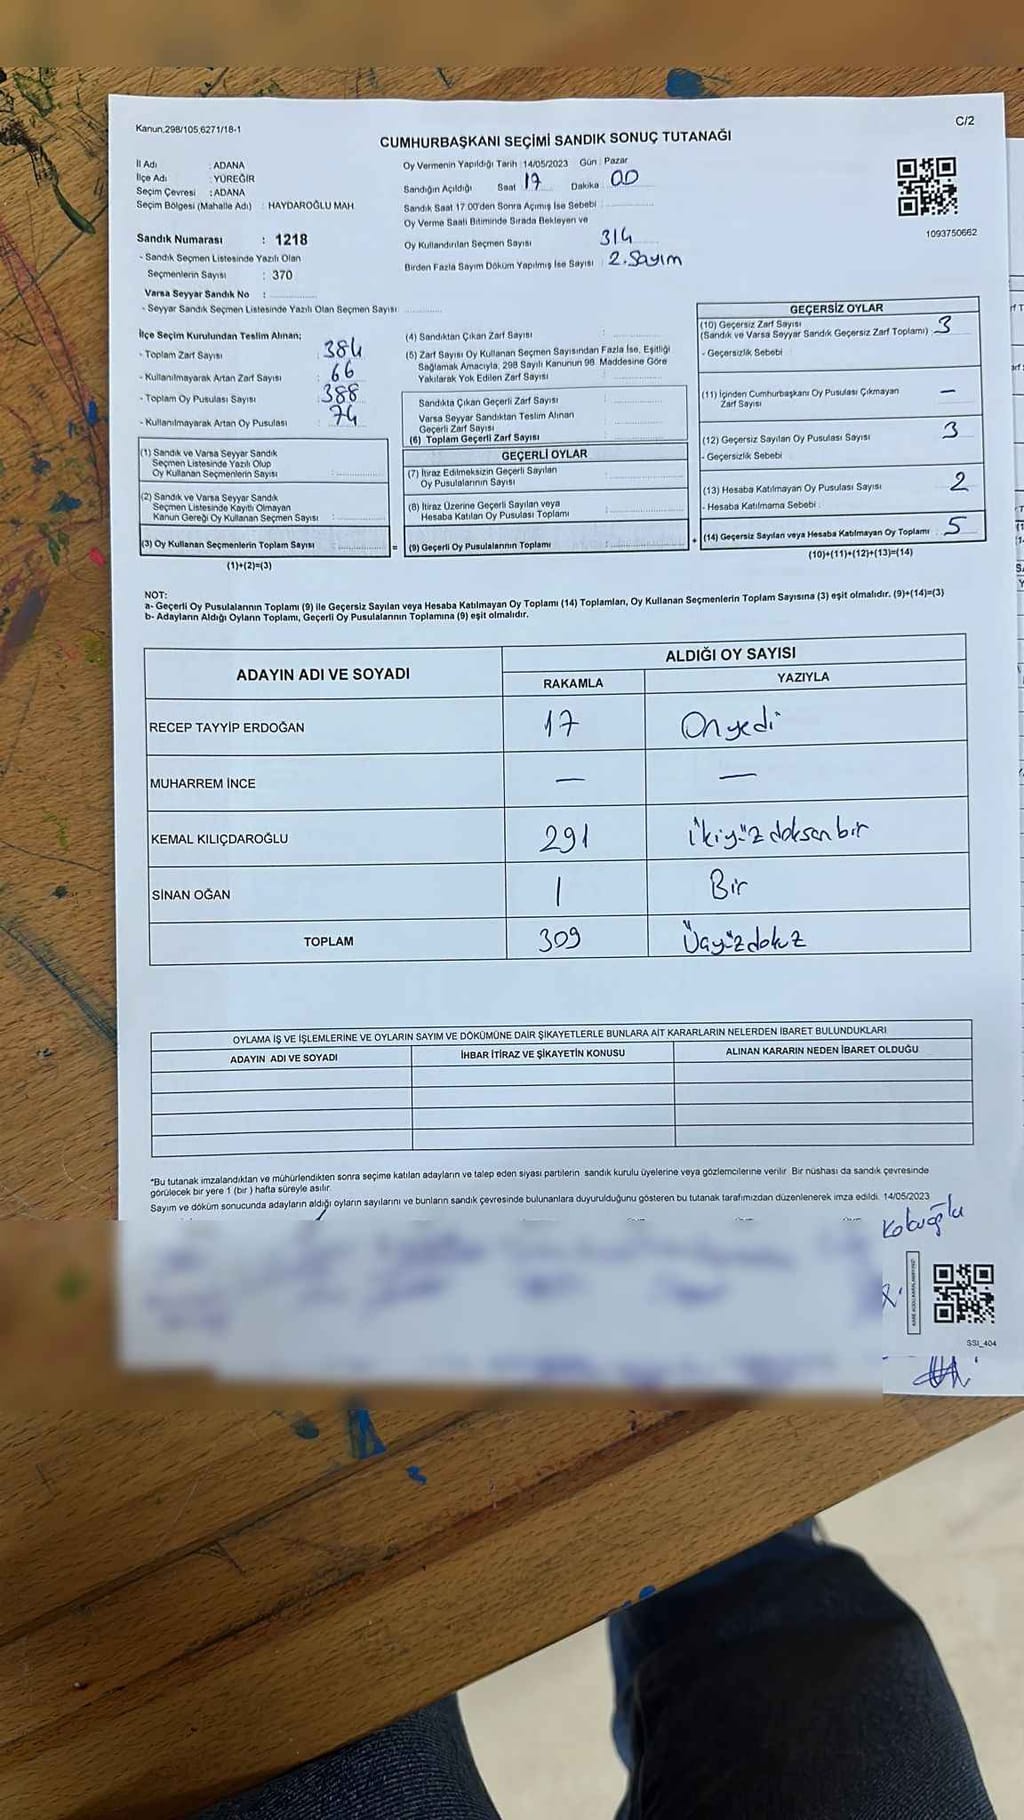 Kanun.298/105,6271/18-1
C/2
CUMHURBAŞKANI SEÇİMİ SANDIK SONUÇ TUTANAĞI
İl Adı : ADANA
İlçe Adı : YÜREĞİR
Seçim Çevresi : ADANA
Seçim Bölgesi (Mahalle Adı) : HAYDAROĞLU MAH.
Sandık Numarası : 1218
- Sandık Seçmen Listesinde Yazılı Olan
Seçmenlerin Sayısı : 370
Varsa Seyyar Sandık No :
- Seyyar Sandık Seçmen Listesinde Yazılı Olan Seçmen Sayısı:
Oy Vermenin Yapıldığı Tarih : 14/05/2023 Gün : Pazar
Sandığın Açıldığı Saat 17 Dakika : 00
Sandık Saat 17.00'den Sonra Açımış İse Sebebi :
Oy Verme Saati Bitiminde Sırada Bekleyen ve
Oy Kullandırılan Seçmen Sayısı 314
Birden Fazla Sayım Döküm Yapılmış İse Sayısı : 2.Sayım
1093750662
İlçe Seçim Kurulundan Teslim Alınan;
- Toplam Zarf Sayısı : 384
- Kullanılmayarak Artan Zarf Sayısı : 66
- Toplam Oy Pusulası Sayısı : 388
- Kullanılmayarak Artan Oy Pusulası : 74
(1) Sandık ve Varsa Seyyar Sandık
Seçmen Listesinde Yazılı Olup
Oy Kullanan Seçmenlerin Sayısı :
(2) Sandık ve Varsa Seyyar Sandık
Seçmen Listesinde Kayıtlı Olmayan
Kanun Gereği Oy Kullanan Seçmen Sayısı :
(3) Oy Kullanan Seçmenlerin Toplam Sayısı :
(1)+(2)=(3)
(4) Sandıktan Çıkan Zarf Sayısı :
(5) Zarf Sayısı Oy Kullanan Seçmen Sayısından Fazla İse, Eşitliği
Sağlamak Amacıyla, 298 Sayılı Kanunun 98. Maddesine Göre
Yakılarak Yok Edilen Zarf Sayısı :
Sandıkta Çıkan Geçerli Zarf Sayısı :
Varsa Seyyar Sandıktan Teslim Alınan
Geçerli Zarf Sayısı :
(6) Toplam Geçerli Zarf Sayısı :
GEÇERLİ OYLAR
(7) İtiraz Edilmeksizin Geçerli Sayılan
Oy Pusulalarının Sayısı :
(8) İtiraz Üzerine Geçerli Sayılan veya
Hesaba Katılan Oy Pusulası Toplamı :
= (9) Geçerli Oy Pusulalarının Toplamı :
GEÇERSİZ OYLAR
(10) Geçersiz Zarf Sayısı 3
(Sandık ve Varsa Seyyar Sandık Geçersiz Zarf Toplamı)
- Geçersizlik Sebebi
(11) İçinden Cumhurbaşkanı Oy Pusulası Çıkmayan —
Zarf Sayısı
(12) Geçersiz Sayılan Oy Pusulası Sayısı 3
- Geçersizlik Sebebi
(13) Hesaba Katılmayan Oy Pusulası Sayısı 2
- Hesaba Katılmama Sebebi :
+ (14) Geçersiz Sayılan veya Hesaba Katılmayan Oy Toplamı : 5
(10)+(11)+(12)+(13)=(14)
NOT:
a- Geçerli Oy Pusulalarının Toplamı (9) ile Geçersiz Sayılan veya Hesaba Katılmayan Oy Toplamı (14) Toplamları, Oy Kullanan Seçmenlerin Toplam Sayısına (3) eşit olmalıdır. (9)+(14)=(3)
b- Adayların Aldığı Oyların Toplamı, Geçerli Oy Pusulalarının Toplamına (9) eşit olmalıdır.
ADAYIN ADI VE SOYADI ALDIĞI OY SAYISI
RAKAMLA YAZIYLA
RECEP TAYYİP ERDOĞAN 17 Onyedi
MUHARREM İNCE — —
KEMAL KILIÇDAROĞLU 291 İkiyüzdoksanbir
SİNAN OĞAN 1 Bir
TOPLAM 309 Üçyüzdokuz
OYLAMA İŞ VE İŞLEMLERİNE VE OYLARIN SAYIM VE DÖKÜMÜNE DAİR ŞİKAYETLERLE BUNLARA AİT KARARLARIN NELERDEN İBARET BULUNDUKLARI
ADAYIN ADI VE SOYADI İHBAR İTİRAZ VE ŞİKAYETİN KONUSU ALINAN KARARIN NEDEN İBARET OLDUĞU
*Bu tutanak imzalandıktan ve mühürlendikten sonra seçime katılan adayların ve talep eden siyasi partilerin sandık kurulu üyelerine veya gözlemcilerine verilir. Bir nüshası da sandık çevresinde
görülecek bir yere 1 (bir) hafta süreyle asılır.
Sayım ve döküm sonucunda adayların aldığı oyların sayılarını ve bunların sandık çevresinde bulunanlara duyurulduğunu gösteren bu tutanak tarafımızdan düzenlenerek imza edildi. 14/05/2023
SSI_404